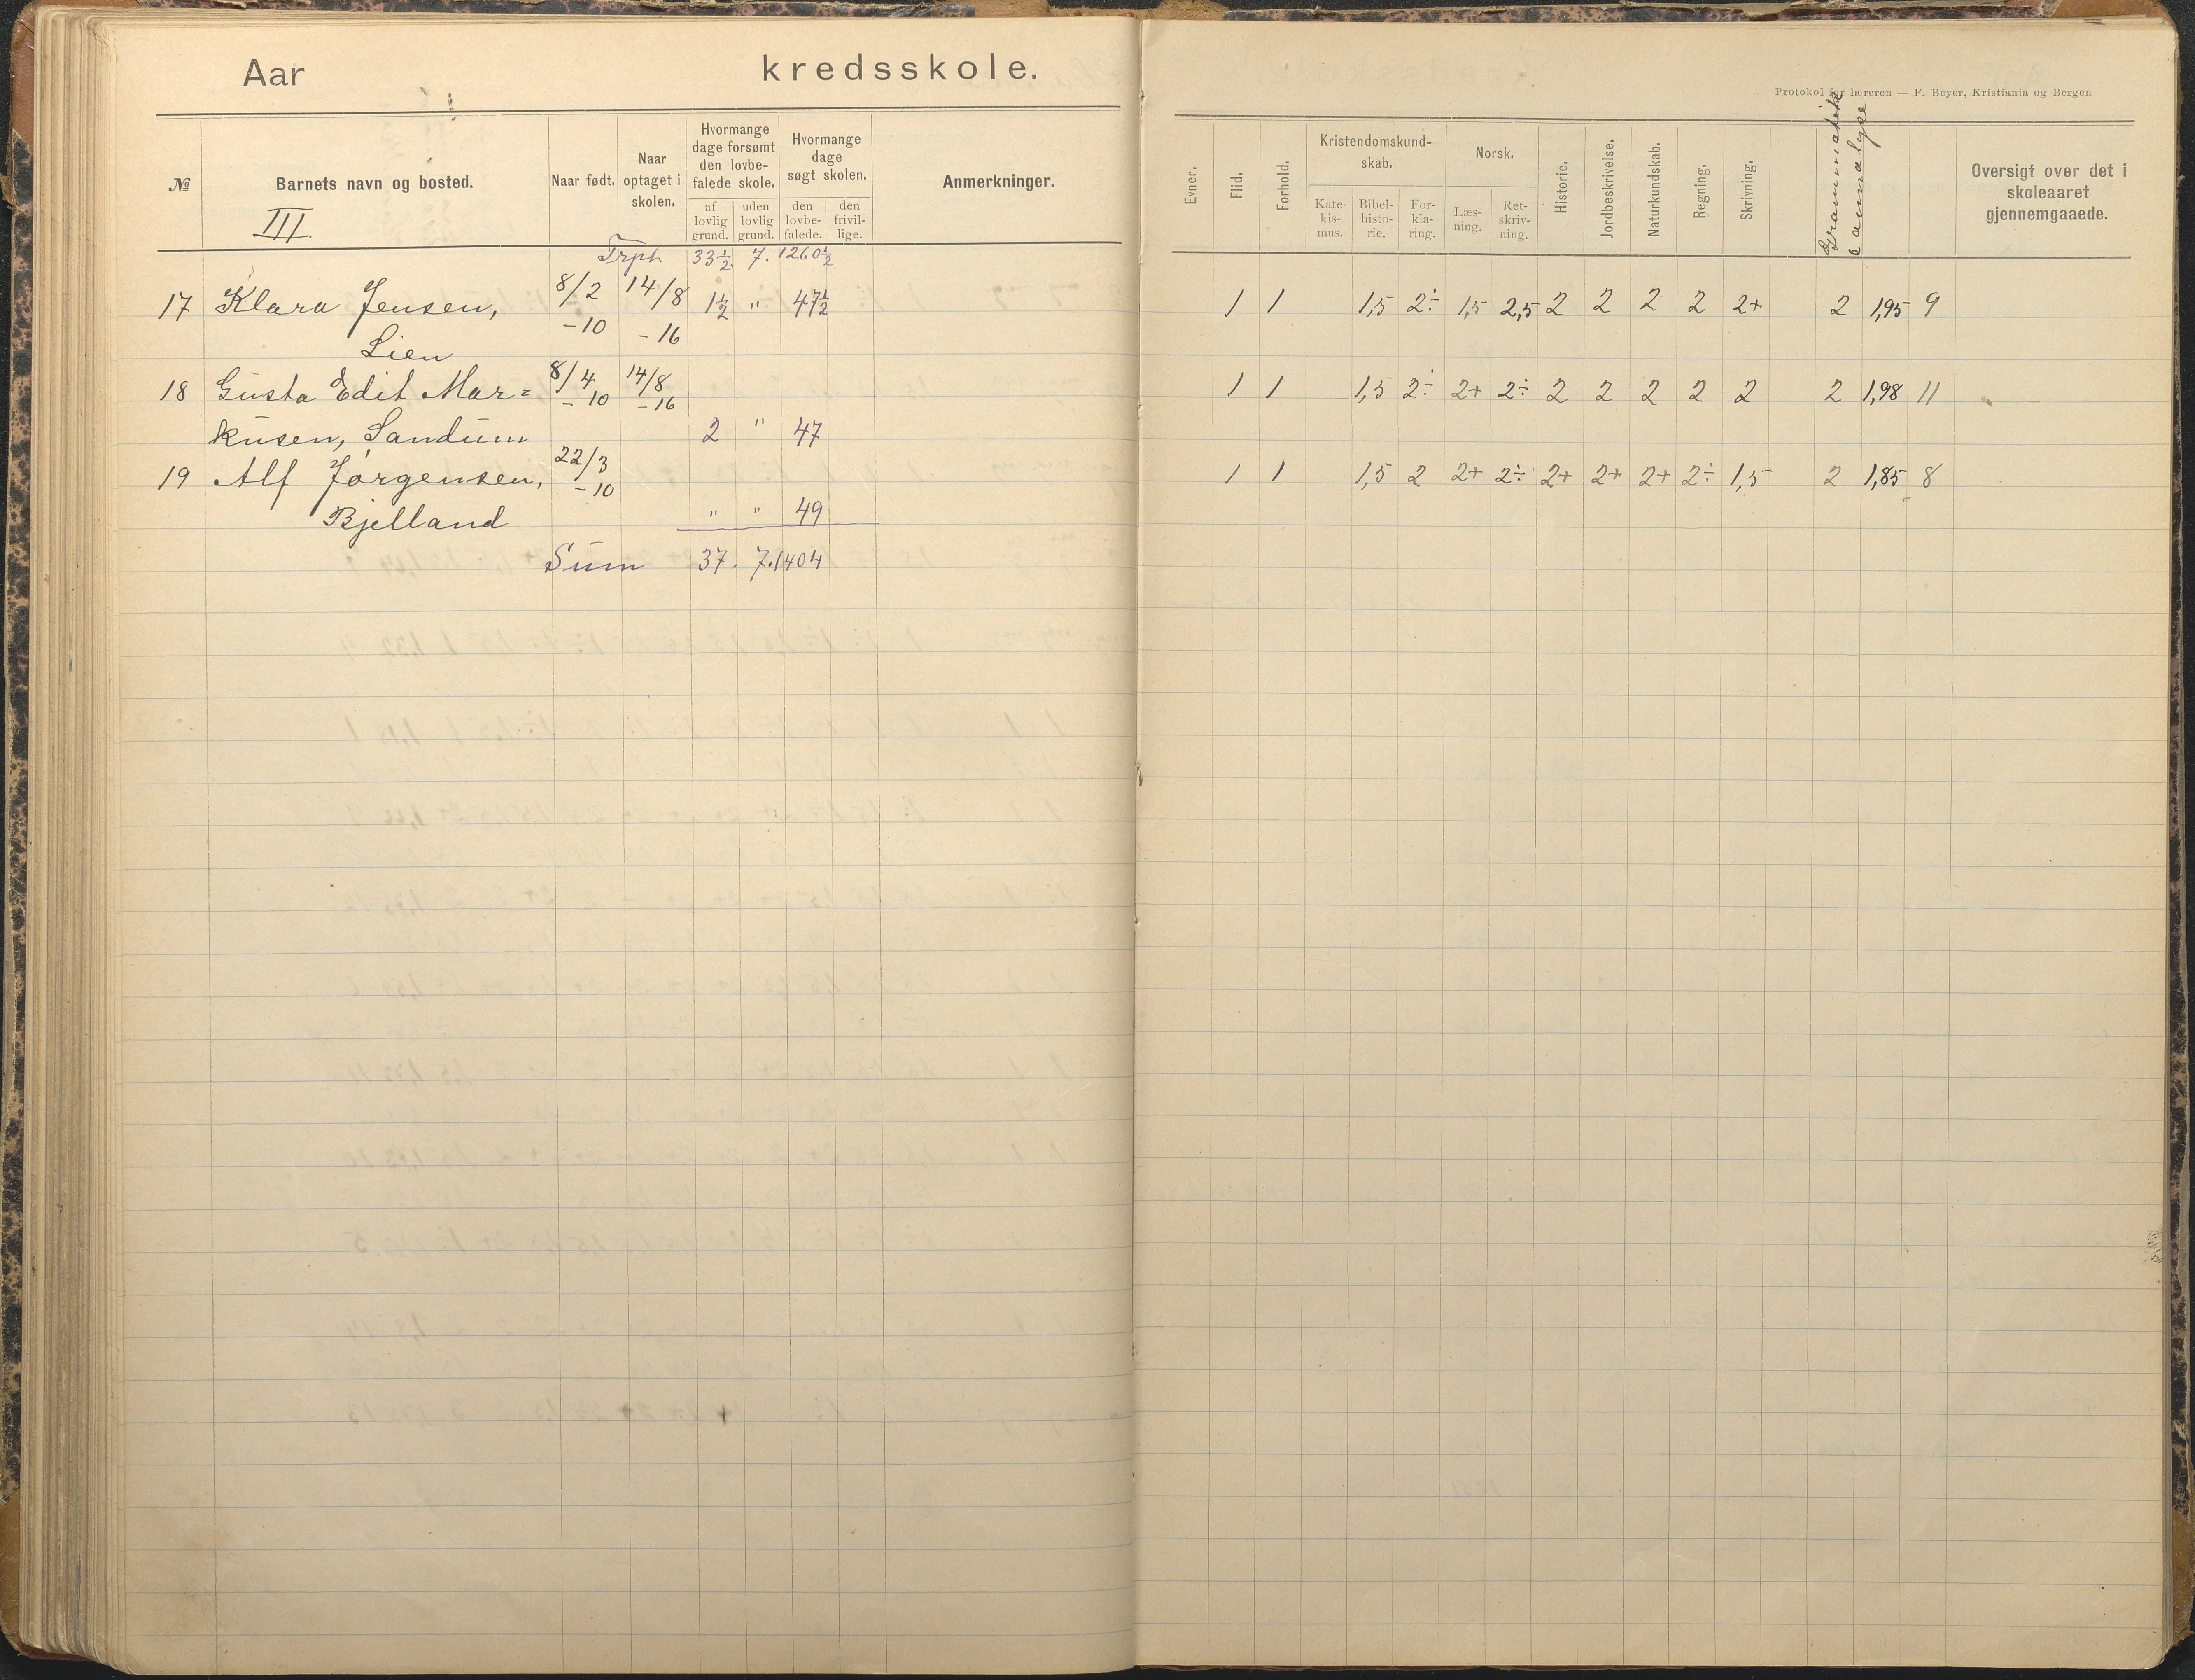 Aar kredsskole.
Protokol for læreren — F. Beyer, Kristiania og Bergen
№ Barnets navn og bosted. Naar født. Naar optaget i skolen. Hvormange dage forsømt den lovbefalede skole. af lovlig grund. uden lovlig grund. Hvormange dage søgt skolen. den lovbefalede. den frivillige. Anmerkninger.
Evner. Flid. Forhold. Kristendomskundskab. Katekismus. Bibelhistorie. Forklaring. Norsk. Læsning. Retskrivning. Historie. Jordbeskrivelse. Naturkundskab. Regning. Skrivning. Oversigt over det i skoleaaret gjennemgaaede.
III
33½ 7. 1260½
17 Klara Jensen, 8/2 14/8 1½ " 47½ 1 1 1,5 2÷ 1,5 2,5 2 2 2 2 2+ 2 1,95 9
Lien -10 -16
18 Gusta Edit Mar= 8/4 14/8 1 1 1,5 2÷ 2+ 2÷ 2 2 2 2 2 2 1,98 11
-10 -16
kusen, Sandum 2 " 47
19 Alf Jørgensen, 22/3 1 1 1,5 2 2+ 2÷ 2+ 2+ 2+ 2÷ 1,5 2 1,85 8
-10
Bjelland " " 49
Sum 37. 7. 1404